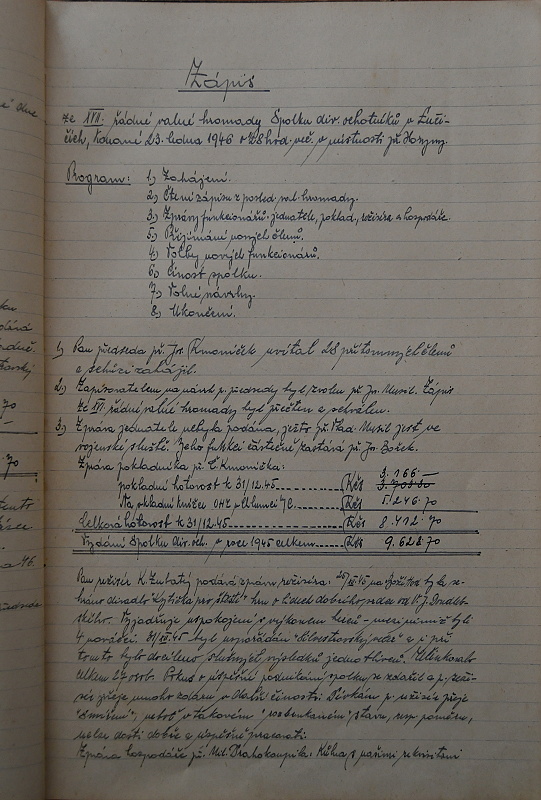 Zápis
ze XVII. řádné valné hromady Spolku div. ochotníků v Luči-
cích, konané 23. ledna 1946 v 28 hod. več. v místnosti př.
Program: 1.) Zahájení.
2.) Čtení zápisu z posled. val. hromady.
3.) Zprávy funkcionářů. jednatele, poklad., režiséra a hospodáře.
5.) Přijímání nových členů.
4.) Volby nových funkcionářů.
6.) Činost spolku.
7.) Volné návrhy.
8.) Ukončení.
1.) Pan předseda př. Jos. Krmoníček uvítal 28 přítomných členů
a schůzi zahájil.
2.) Zapisovatelem na návrh p. předsedy byl zvolen př. Jos. Musil. Zápis
ze XVI. řádné valné hromady byl přečten a schválen.
3.) Zpráva jednatele nebyla podána, ježto př. Vlad. Musil jest ve
vojenské službě. Jeho funkci částečně zastává př. Jos. Boček.
Zpráva pokladníka př. Č. Krmoníčka:
3.166 —
pokladní hotovost k 31/12.45 Kčs
Na vkladní knížce Kčs 5.246.70
Celková hotovost k 31/12.45 Kčs 8.412.70
Vydání Spolku div. och. v roce 1945 celkem Kčs 9.628.70
Pan režisér K. Zubatý podává zprávu režiséra: byla se-
hráno divadlo hru o lidech dobrého srdce od
Vyjadřuje uspokojení s výkonem herců - mezi nimiž byli
4 nováčci. 31/XII.45 byl uspořádán "Silvestrovský večer" a i při
tomto bylo docíleno slušných výsledků jednotlivců. Účinkovalo
celkem 27 osob. Pokus o úspěšné podnikání spolku se zdařil a p. reži-
sér přeje mnoho zdaru v další činosti. Dívkám p. režisér přeje
v takovém stavu, resp. poměru,
nelze dosti dobře a úspěšně pracovati.
Zpráva hospodáře př. Mil. Drahokoupila: s našimi rekvisitami